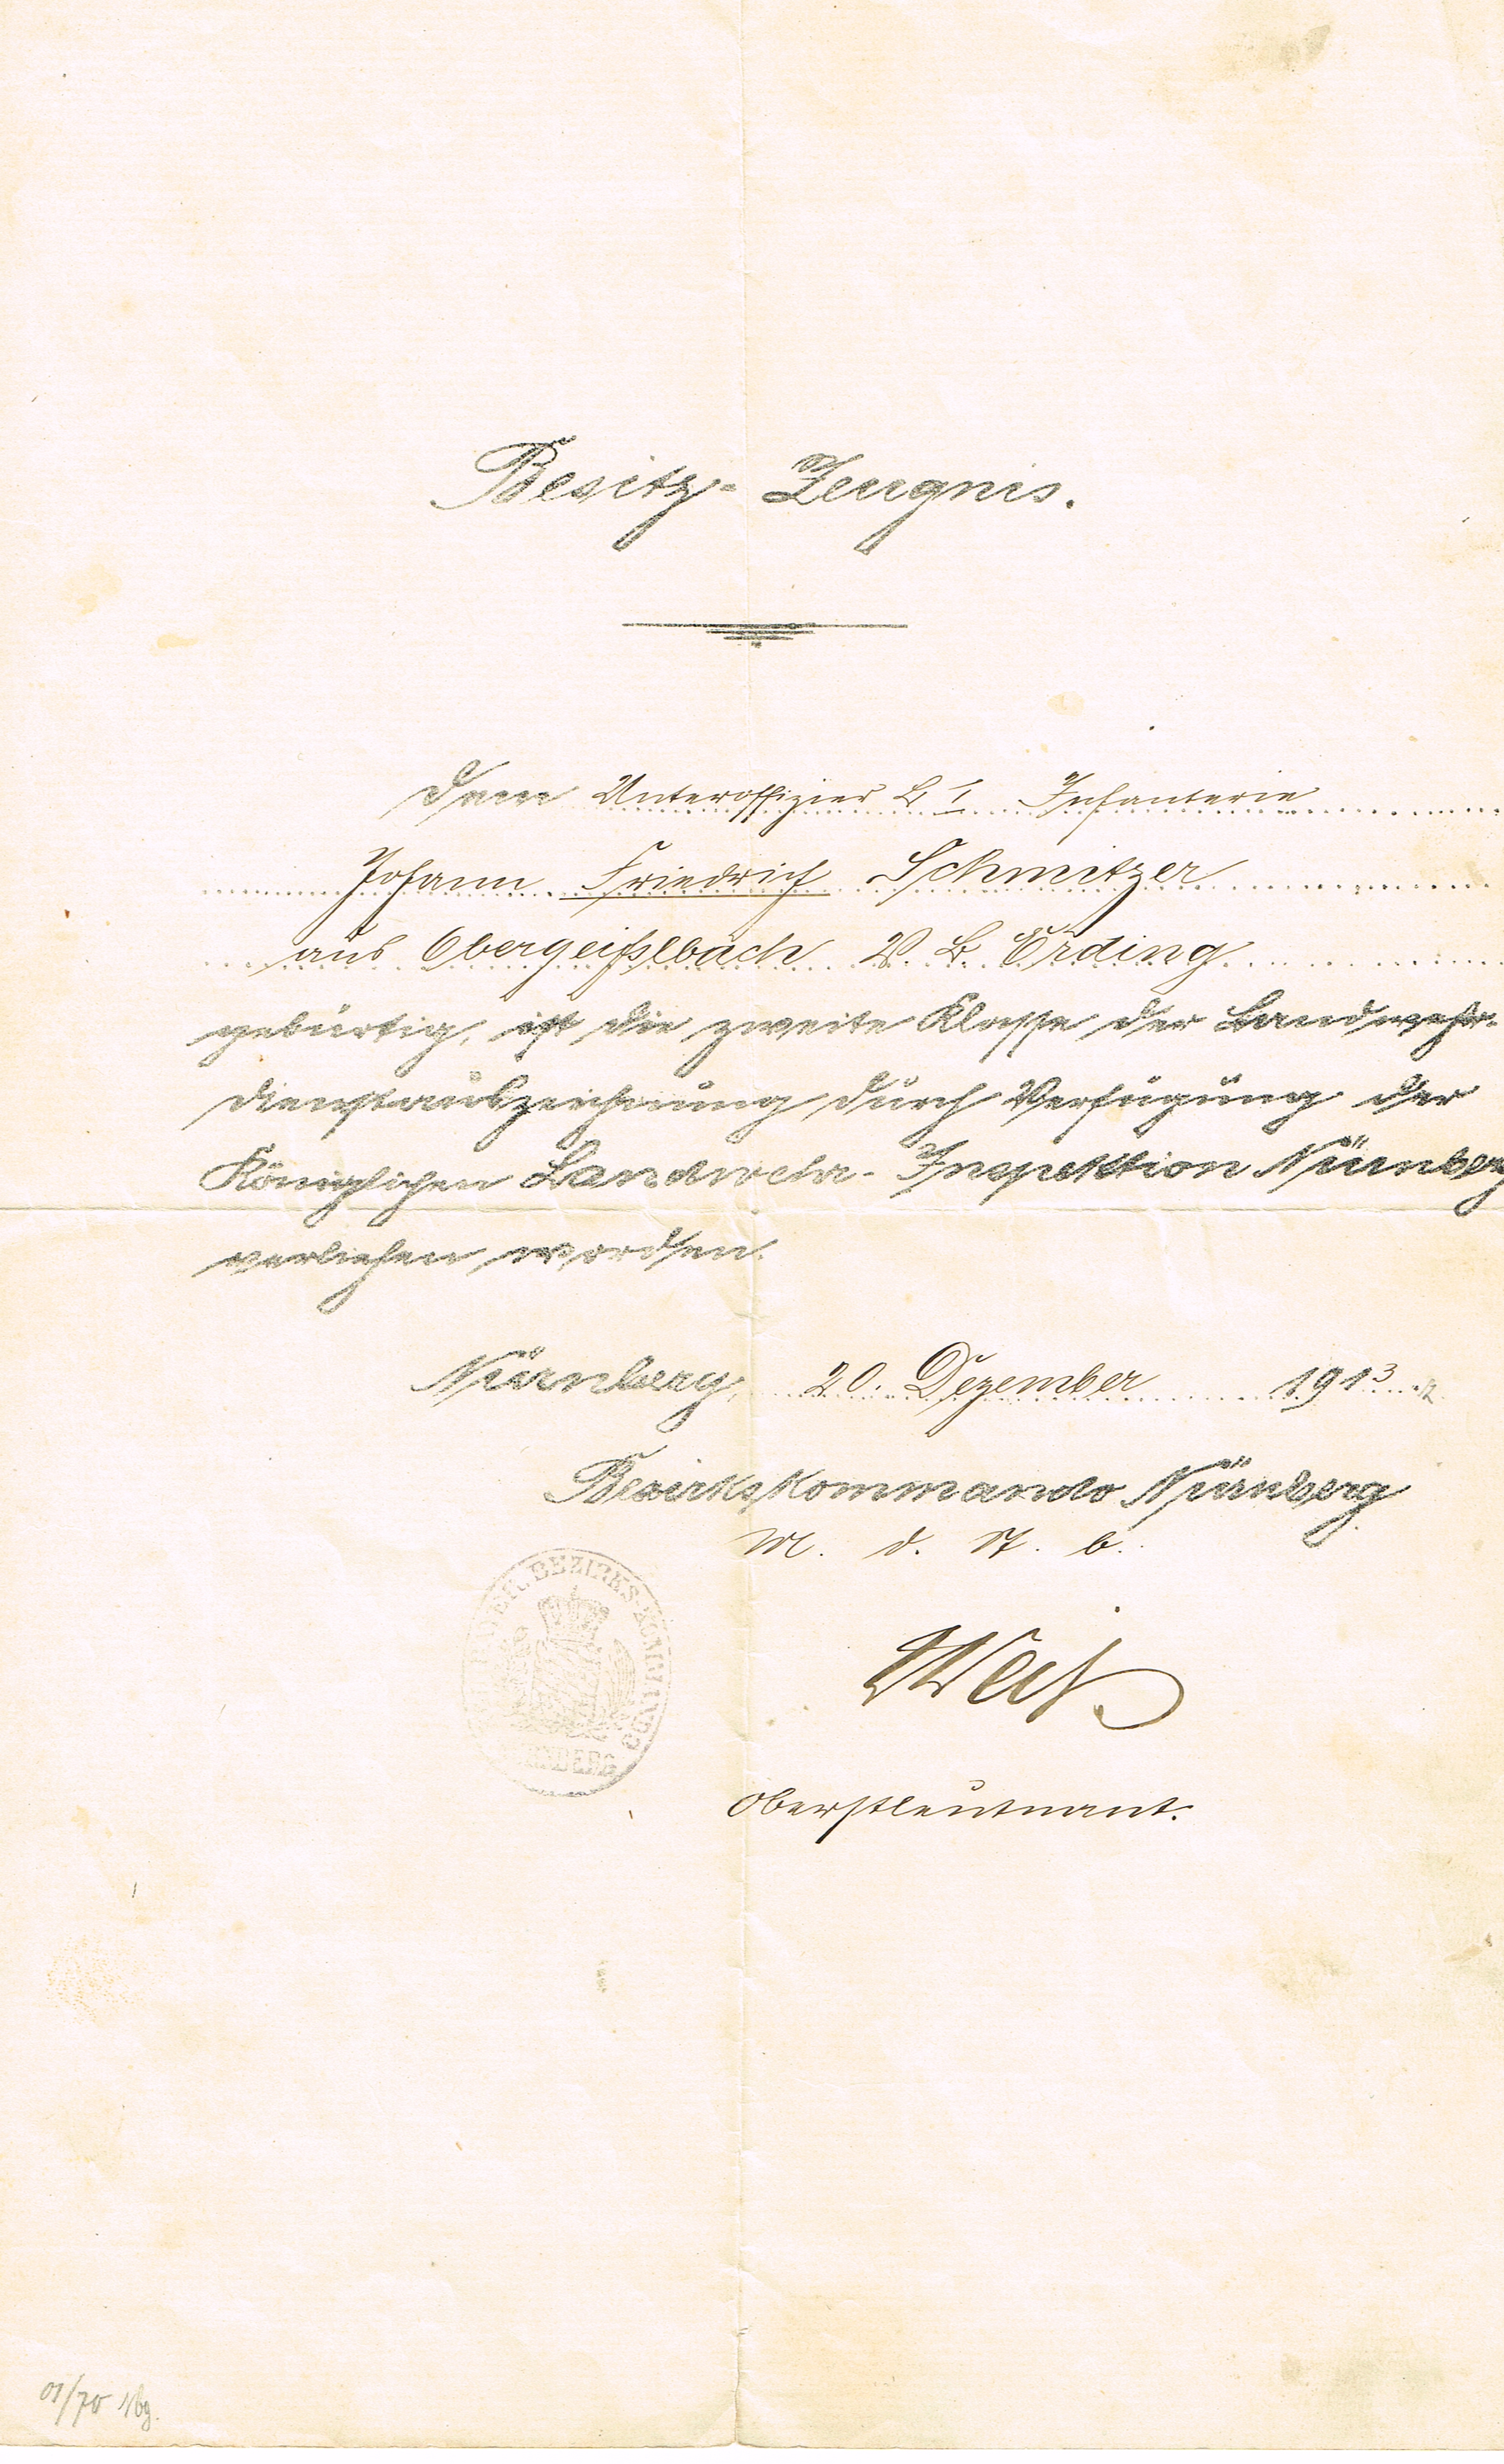 Besitz-Zeugnis.
Dem Unteroffizier L I Infanterie
Johann Friedrich Schmitzer
aus Obergeißlbach V. B. Erding
gebürtig, ist die zweite Klasse der Landwehr-
dienstauszeichnung durch Verfügung der
Königlichen Landwehr-Inspektion Nürnberg
verliehen worden.
Nürnberg, 20. Dezember 1913
Bezirkskommando Nürnberg
M. d. F. b.
BAYER. BEZIRKS-KOMMANDO
NÜRNBERG
Oberstleutnant.
01/70 Nbg.